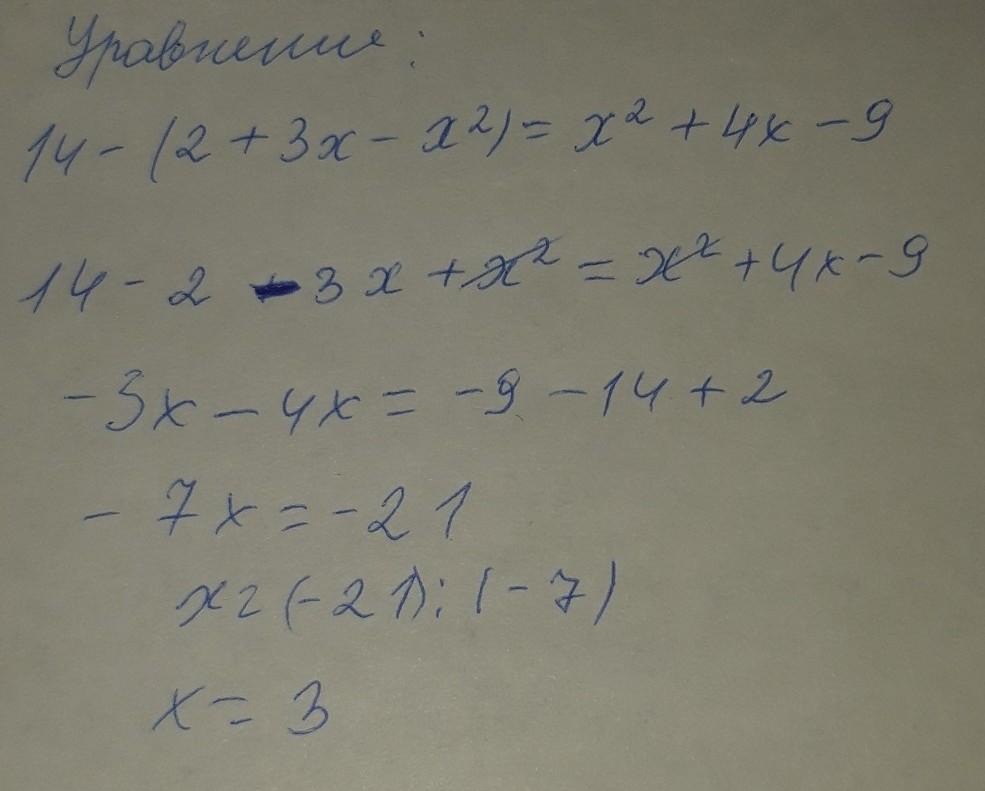 Уравнение:
14 - (2 + 3x - x²) = x² + 4x - 9
14 - 2 - 3x + x² = x² + 4x - 9
- 3x - 4x = -9 - 14 + 2
- 7x = -21
x = (-21) : (-7)
x = 3